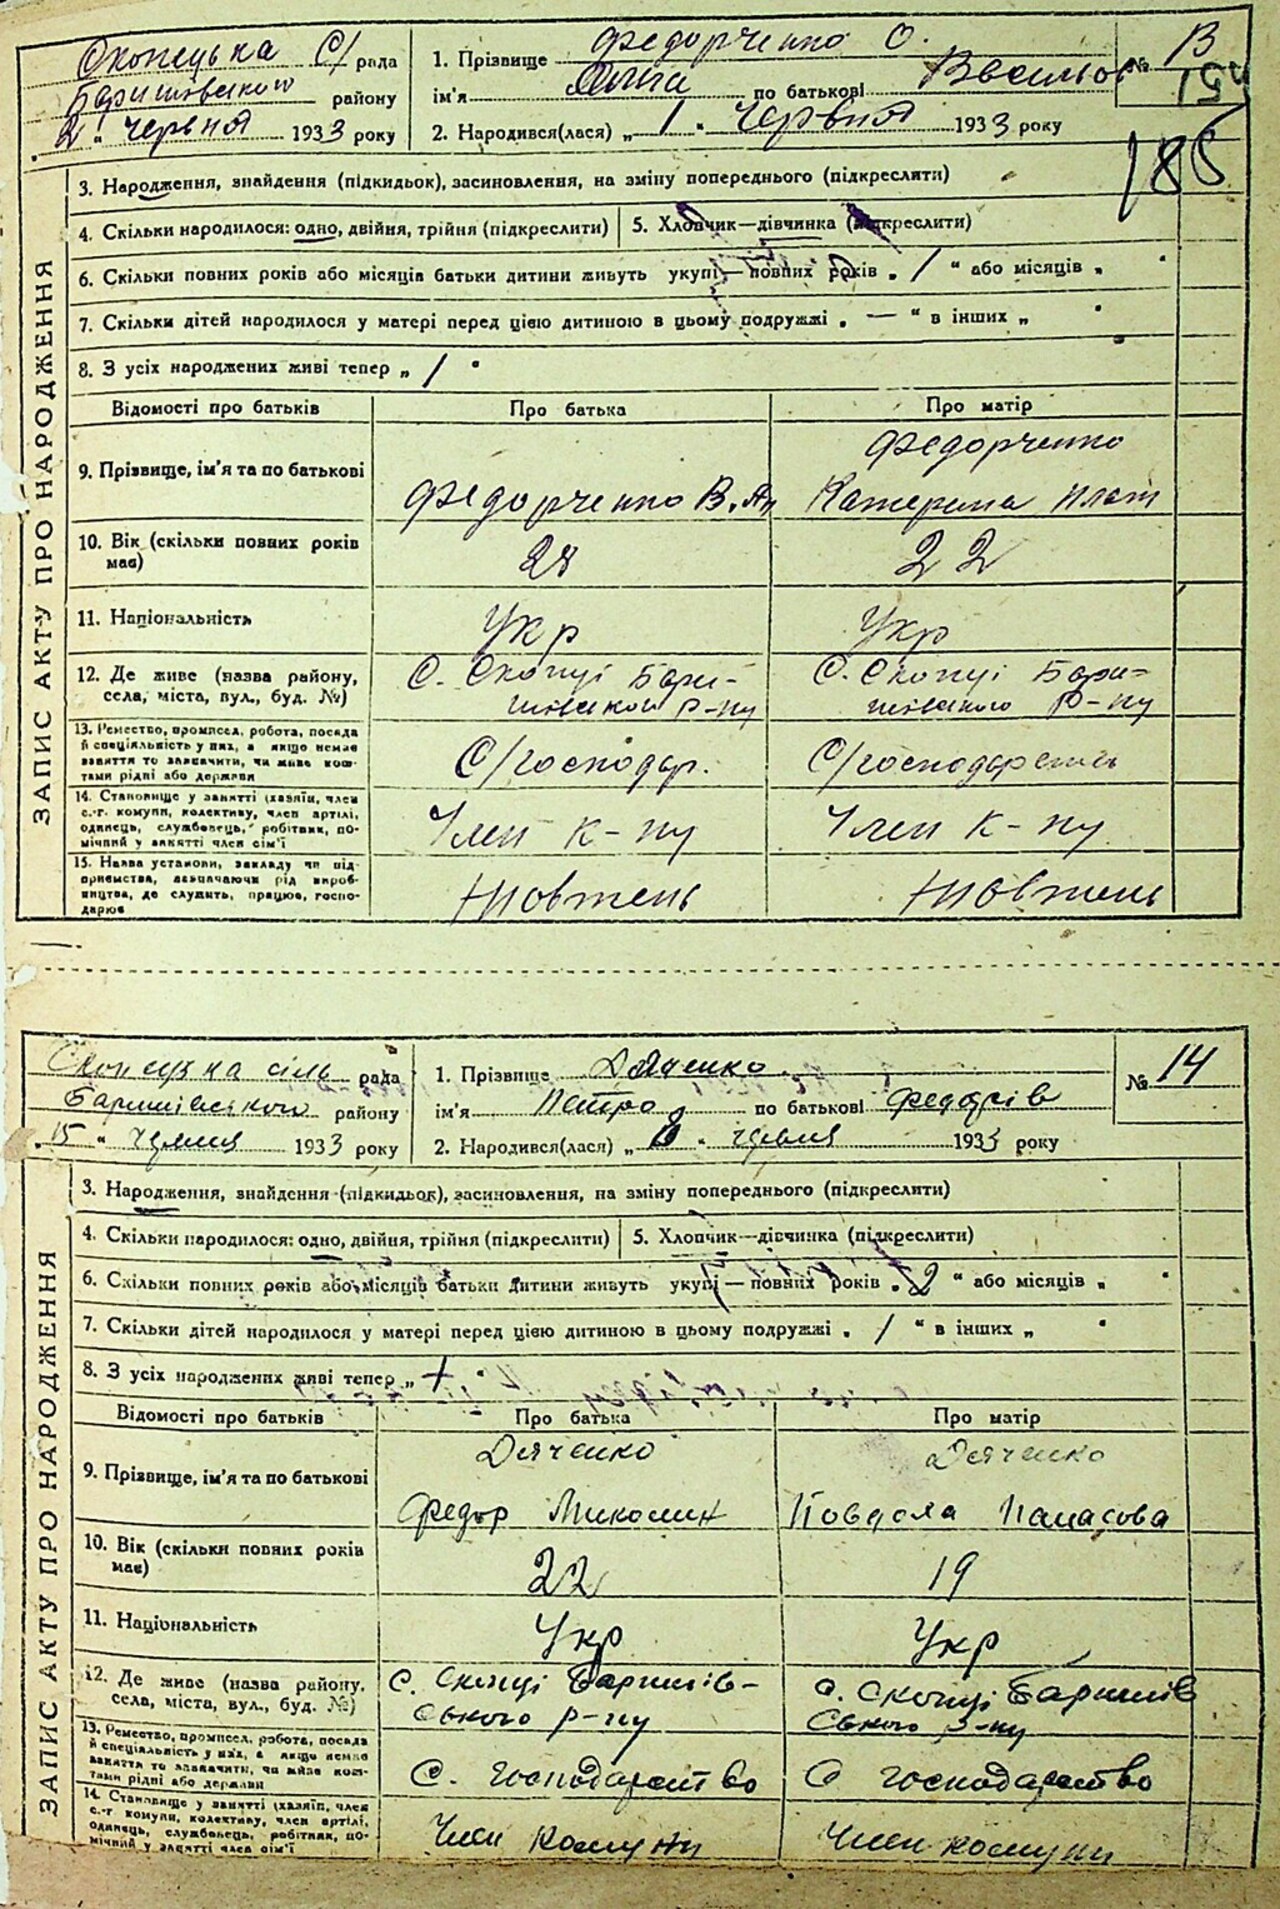 Скопецька С/ рада
Баришівського району
„2“ червня 1933 року
1. Прізвище Федорченко О.
ім'я Ганна по батькові Васильов
2. Народився(лася) „1“ червня 1933 року
№ 13
186
3. Народження, знайдення (підкидьок), засиновлення, на зміну попереднього (підкреслити)
4. Скільки народилося: одно, двійня, трійня (підкреслити)
5. Хлопчик—дівчинка (підкреслити)
6. Скільки повних років або місяців батьки дитини живуть укупі—повних років „1“ або місяців „ “
7. Скільки дітей народилося у матері перед цією дитиною в цьому подружжі „—“ в інших „ “
8. З усіх народжених живі тепер „1“
Відомості про батьків Про батька Про матір
9. Прізвище, ім'я та по батькові
Федорченко В. Ан
Федорченко
Катерина Плат
10. Вік (скільки повних років
має)
22
11. Національність Укр Укр
12. Де живе (назва району,
села, міста, вул., буд. №)
С. Скопці Бари-
шівського р-ну
С. Скопці Бари-
шівського р-ну
13. Ремество, промисел, робота, посада
й спеціальність у них, а якщо немає
заняття то зазначити, чи живе кош-
тами рідні або держави
С/господар.
С/господарств
14. Становище у занятті (хазяїн, член
с.-г. комуни, колективу, член артілі,
одинець, службовець, робітник, по-
мічний у занятті член сім'ї
Член к-ну Член к-ну
15. Назва установи, закладу чи під-
приємства, зазначаючи рід вироб-
ництва, де служить, працює, госпо-
дарює
Жовтень Жовтень
ЗАПИС АКТУ ПРО НАРОДЖЕННЯ
Скопецька сіль рада
Баришівського району
„15“ червня 1933 року
1. Прізвище Дяченко
ім'я Петро по батькові Федорів
2. Народився(лася) червня 1933 року
№ 14
3. Народження, знайдення (підкидьок), засиновлення, на зміну попереднього (підкреслити)
4. Скільки народилося: одно, двійня, трійня (підкреслити)
5. Хлопчик—дівчинка (підкреслити)
6. Скільки повних років або місяців батьки дитини живуть укупі—повних років „2“ або місяців „ “
7. Скільки дітей народилося у матері перед цією дитиною в цьому подружжі „1“ в інших „ “
8. З усіх народжених живі тепер „ “
Відомості про батьків Про батька Про матір
9. Прізвище, ім'я та по батькові
Дяченко
Федор Миколин
Дяченко
Повдоля Панасова
10. Вік (скільки повних років
має)
22 19
11. Національність Укр Укр
12. Де живе (назва району,
села, міста, вул., буд. №)
с. Скопці Баришів-
ського р-ну
с. Скопці Баришів
ського р-ну
13. Ремество, промисел, робота, посада
й спеціальність у них, а якщо немає
заняття то зазначити, чи живе кош-
тами рідні або держави
С. господарство С господарство
14. Становище у занятті (хазяїн, член
с.-г. комуни, колективу, член артілі,
одинець, службовець, робітник, по-
мічний у занятті член сім'ї
Член комуни Член комуни
ЗАПИС АКТУ ПРО НАРОДЖЕННЯ